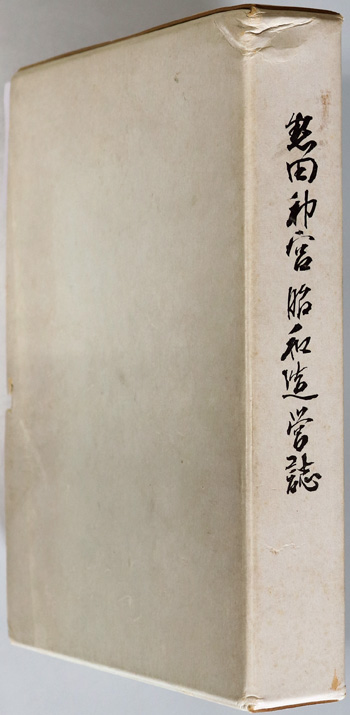 熱田神宮昭和造営誌